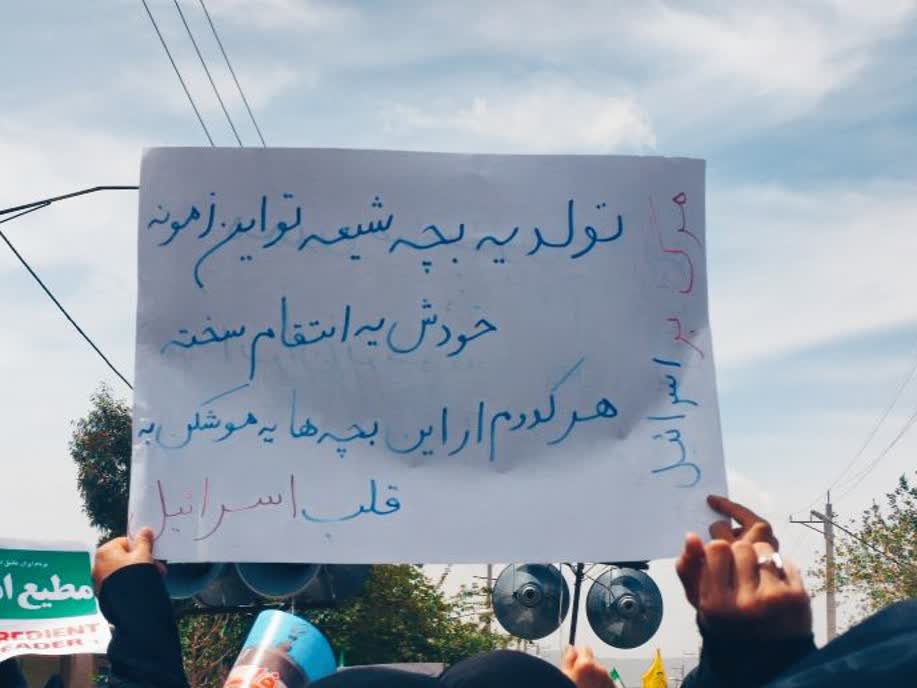 تولد یه بچه شیعه تو این زمونه
خودش یه انتقام سخته
هر کدوم از این بچه ها یه موشکن به
قلب اسرائیل
مرگ بر اسرائیل
مطیع